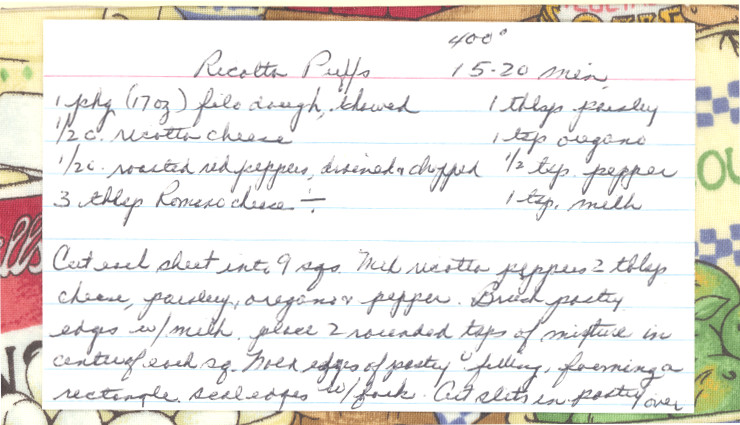 400°
Ricotta Puffs 15-20 min.
1 pkg (17 oz) filo dough, thawed 1 tblsp parsley
1/2 c. ricotta cheese 1 tsp oregano
1/2 c. roasted red peppers, drained & chopped 1/2 tsp. pepper
3 tblsp Romano cheese ÷ 1 tsp. milk
Cut each sheet into 9 sqs. Mix ricotta peppers 2 tblsp
cheese, parsley, oregano & pepper. Brush pastry
edges w/ milk. place 2 rounded tsps of mixture in
center of each sq. Fold edges of pastry filling, forming a
rectangle. seal edges w/ fork. Cut slits in pastry over